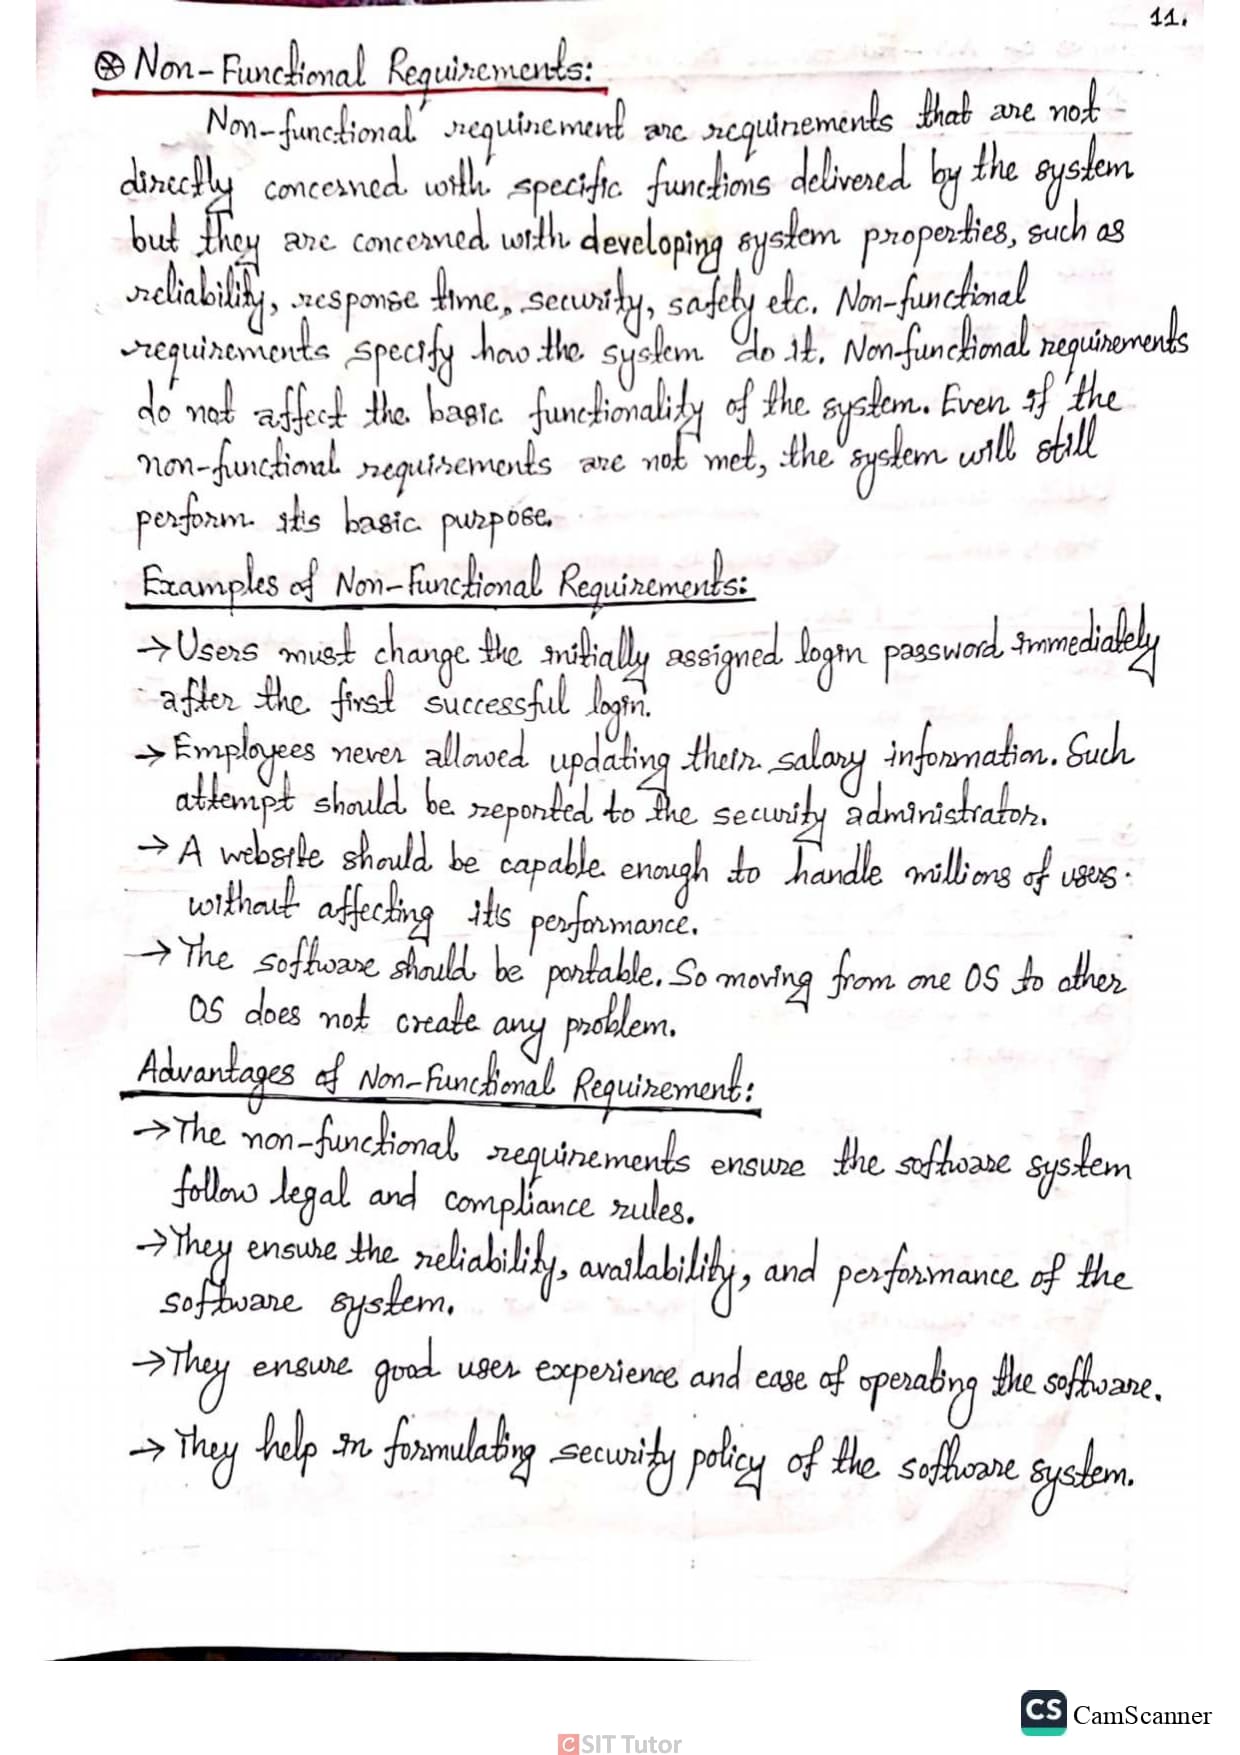 11.
⊛ Non-Functional Requirements:
Non-functional requirement are requirements that are not
directly concerned with specific functions delivered by the system
but they are concerned with developing system properties, such as
reliability, response time, security, safety etc. Non-functional
requirements specify how the system do it. Non-functional requirements
do not affect the basic functionality of the system. Even if the
non-functional requirements are not met, the system will still
perform it's basic purpose.
Examples of Non-Functional Requirements:
→ Users must change the initially assigned login password immediately
after the first successful login.
→ Employees never allowed updating their salary information. Such
attempt should be reported to the security administrator.
→ A website should be capable enough to handle millions of users
without affecting it's performance.
→ The software should be portable. So moving from one OS to other
OS does not create any problem.
Advantages of Non-Functional Requirement:
→ The non-functional requirements ensure the software system
follow legal and compliance rules.
→ They ensure the reliability, availability, and performance of the
software system.
→ They ensure good user experience and ease of operating the software.
→ They help in formulating security policy of the software system.
CS CamScanner
CSIT Tutor